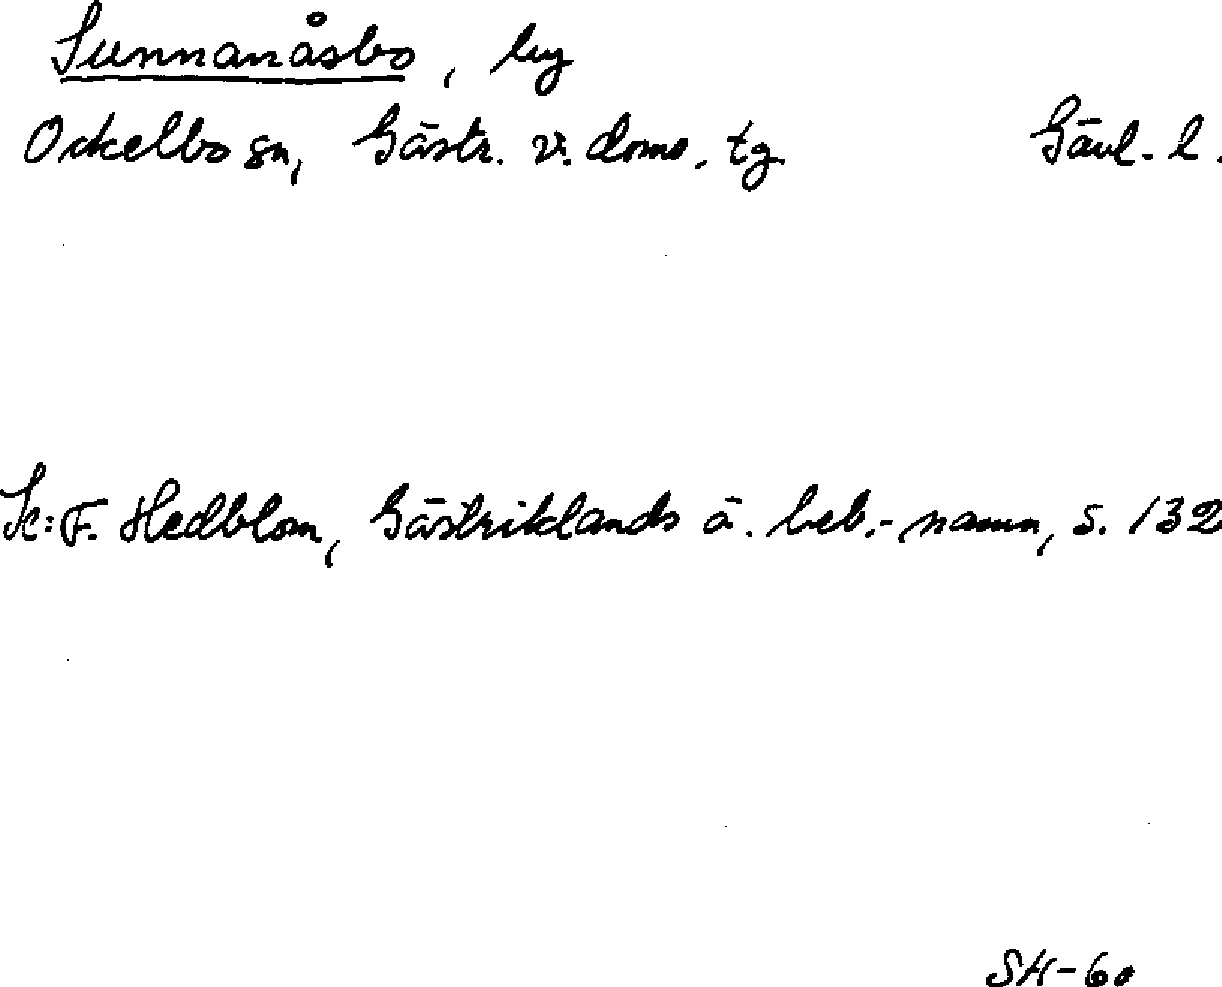 Sunnanåsbo, by
Ockelbo sn, Gästr. v. doms. tg. Gävl. l.
Se: F. Hedblom, Gästriklands ä. beb.-namn, s. 132
SH-60